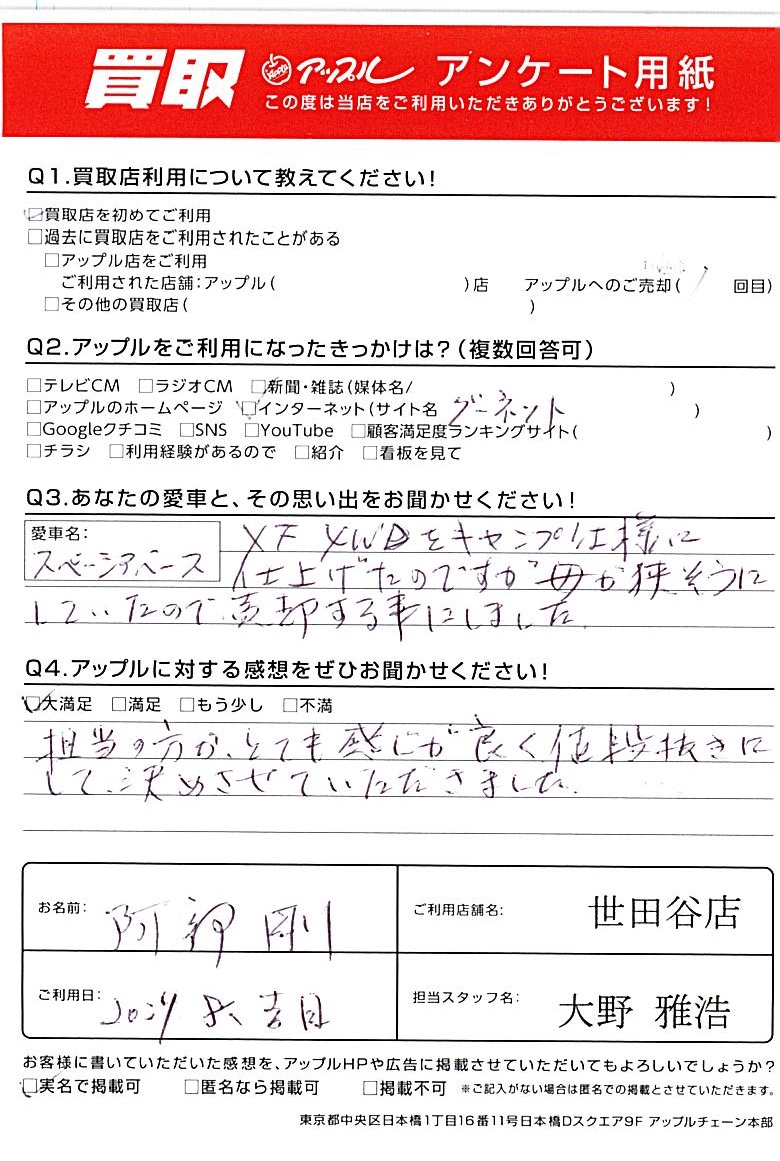 買取 アップル アンケート用紙
この度は当店をご利用いただきありがとうございます!
Q1.買取店利用について教えてください!
☑買取店を初めてご利用
□過去に買取店をご利用されたことがある
□アップル店をご利用
ご利用された店舗:アップル( )店 アップルへのご売却( 1 回目)
□その他の買取店( )
Q2.アップルをご利用になったきっかけは?(複数回答可)
□テレビCM □ラジオCM □新聞・雑誌(媒体名/ )
□アップルのホームページ ☑インターネット(サイト名 グーネット )
□Googleクチコミ □SNS □YouTube □顧客満足度ランキングサイト( )
□チラシ □利用経験があるので □紹介 □看板を見て
Q3.あなたの愛車と、その思い出をお聞かせください!
愛車名:
スペーシアベース
XF XWDをキャンプ仕様に
仕上げたのですが母が狭そうに
していたので売却する事にしました
Q4.アップルに対する感想をぜひお聞かせください!
☑大満足 □満足 □もう少し □不満
担当の方が、とても感じが良く値段抜きに
して決めさせていただきました
お名前: 阿部 剛
ご利用店舗名: 世田谷店
ご利用日:
担当スタッフ名: 大野 雅浩
お客様に書いていただいた感想を、アップルHPや広告に掲載させていただいてもよろしいでしょうか?
☑実名で掲載可 □匿名なら掲載可 □掲載不可 ※ご記入がない場合は匿名での掲載とさせていただきます。
東京都中央区日本橋1丁目16番11号日本橋Dスクエア9F アップルチェーン本部